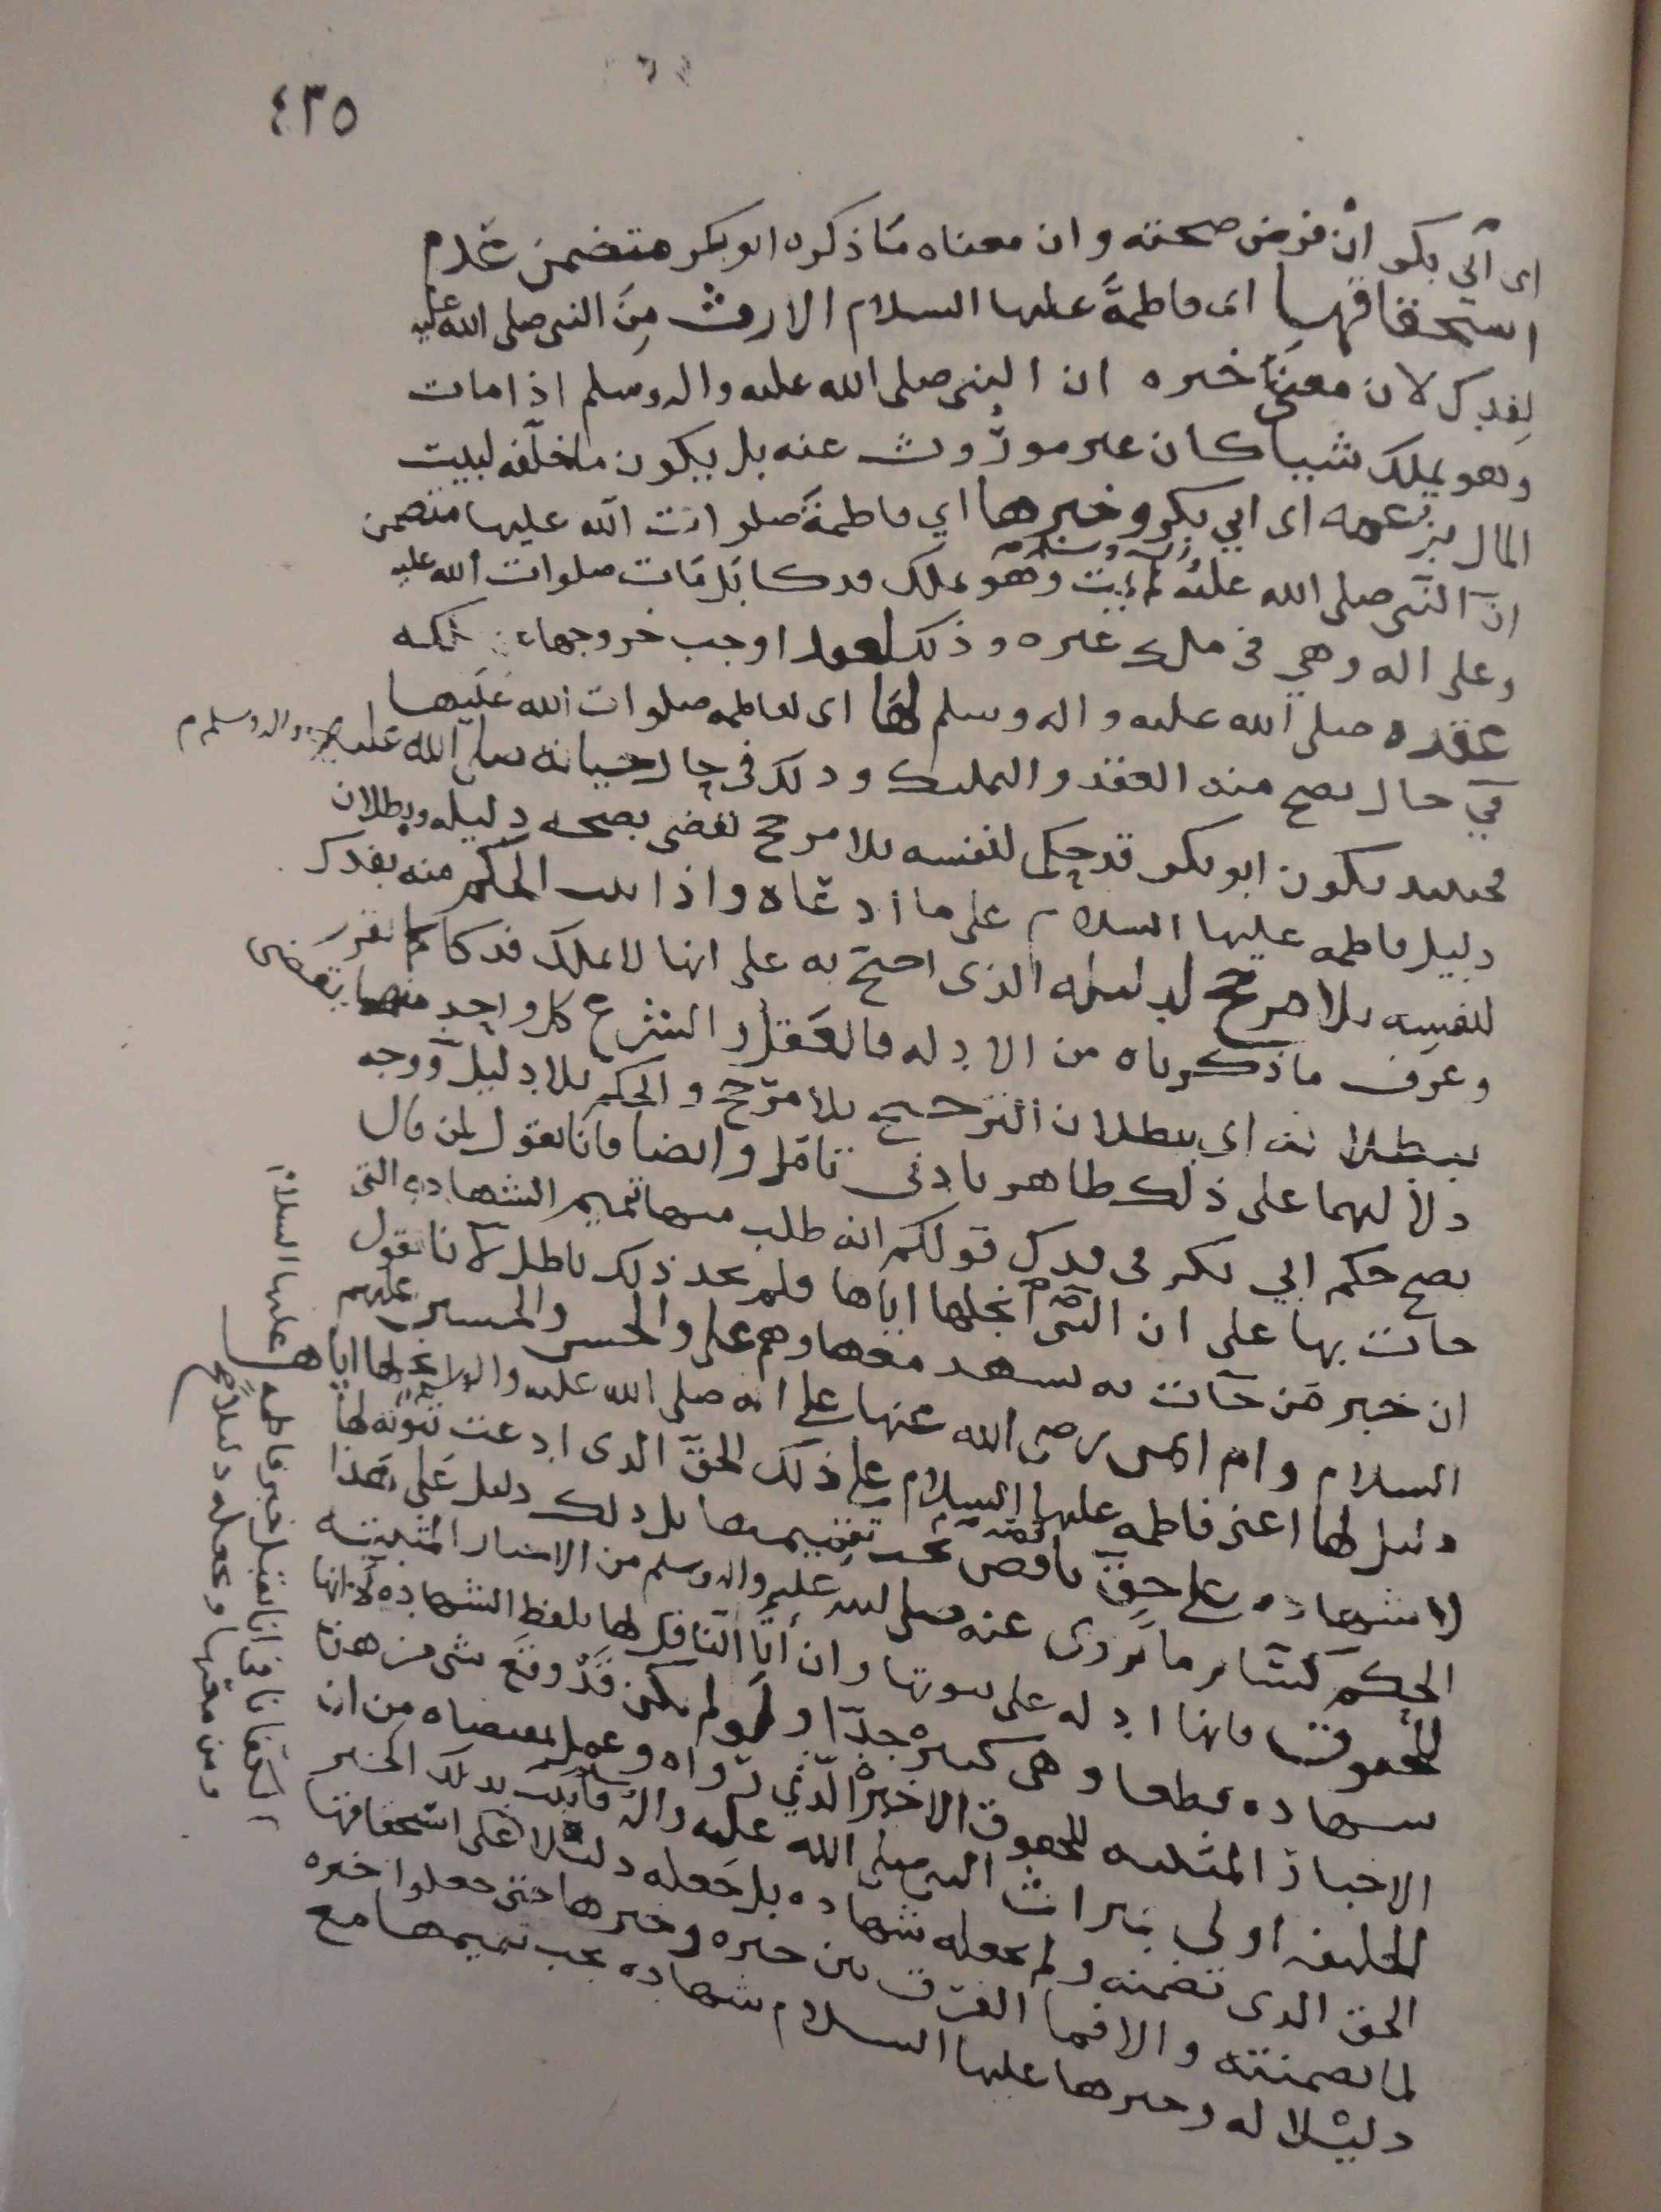 ٤٣٥
اى ابي بكر ان فرض صحته وان معناه ما ذكره ابو بكر متضمن عدم
استحقاقها اى فاطمة عليها السلام الارث من النبي صلى الله عليه
لفدك لان معنى خبره ان النبي صلى الله عليه واله وسلم اذا مات
وهو يملك شيا كان غير موروث عنه بل يكون ما خلفه لبيت
المال بزعمه اى ابي بكر وخبرها اي فاطمة صلوات الله عليها متضمن
ان النبي صلى الله عليه واله وسلم لم يمت وهو يملك فدكا بل مات صلوات الله عليه
وعلى اله وهي في ملك غيره وذلك اوجب خروجها
عقده صلى الله عليه واله وسلم لها اى لفاطمه صلوات الله عليها
في حال يصح منه العقد والتمليك وذلك في حال حياته صلى الله عليه واله وسلم
فحينئذ يكون ابو بكر قد حكم لنفسه بلا مرجح يقضى بصحه دليله وبطلان
دليل فاطمه عليها السلام على ما ادعاه واذا الحكم منه بفدك
لنفسه بلا مرجح لدليله الذى احتج به على انها لا تملك فدكا كما تقرر
وعرف ما ذكرناه من الادله فالعقل والشرع كل واحد منهما يقضى
ببطلانه اى ببطلان الترجيح بلا مرجح والحكم بلا دليل ووجه
دلالهما على ذلك ظاهر بادنى تامل وايضا فانا نقول لمن قال
يصح حكم ابي بكر في فدك قولكم انه طلب منها تميم الشهاده التي
جات بها على ان النبي انحلها اياها ولم يجد ذلك باطل لانا نقول
ان خبر من جآت به يشهد معها وهم على والحسن والحسين عليهم
السلام وام ايمن رضى الله عنها على انه صلى الله عليه واله انحلها اياها
دليل لها اعنى فاطمه عليها السلام على ذلك الحق الذى ادعت ثبوته لها
لا شهاده على حق ناقصه يجب تتميمها بل ذلك دليل على هذا
الحكم كسائر ما يروى عنه صلى الله عليه واله وسلم من الاخبار المثبته
للحقوق فانها ادله على ثبوتها وان اتا الناقل لها بلفظ الشهاده لا انها
شهاده قطعا وهي كثيره جدا ولو لم يكن قد وقع شى من هذا
الاخبار المثبته للحقوق الا خبر الذي رواه وعمل بمقتضاه من ان
الخليفه اولى بتراث النبي صلى الله عليه واله وسلم فاثبت بذلك الخبر
الحق الذى تضمنه ولم يجعله شهاده بل جعله دليلا على استحقاقها
لما تضمنته والا فما الفرق بين خبره وخبرها حتى جعلوا خبره
دليلا له وخبرها عليها السلام شهاده يجب تتميمها مع
اتفاقنا في انا نقبل خبر فاطمه عليها السلام
ومن معها ونجعله دليلا